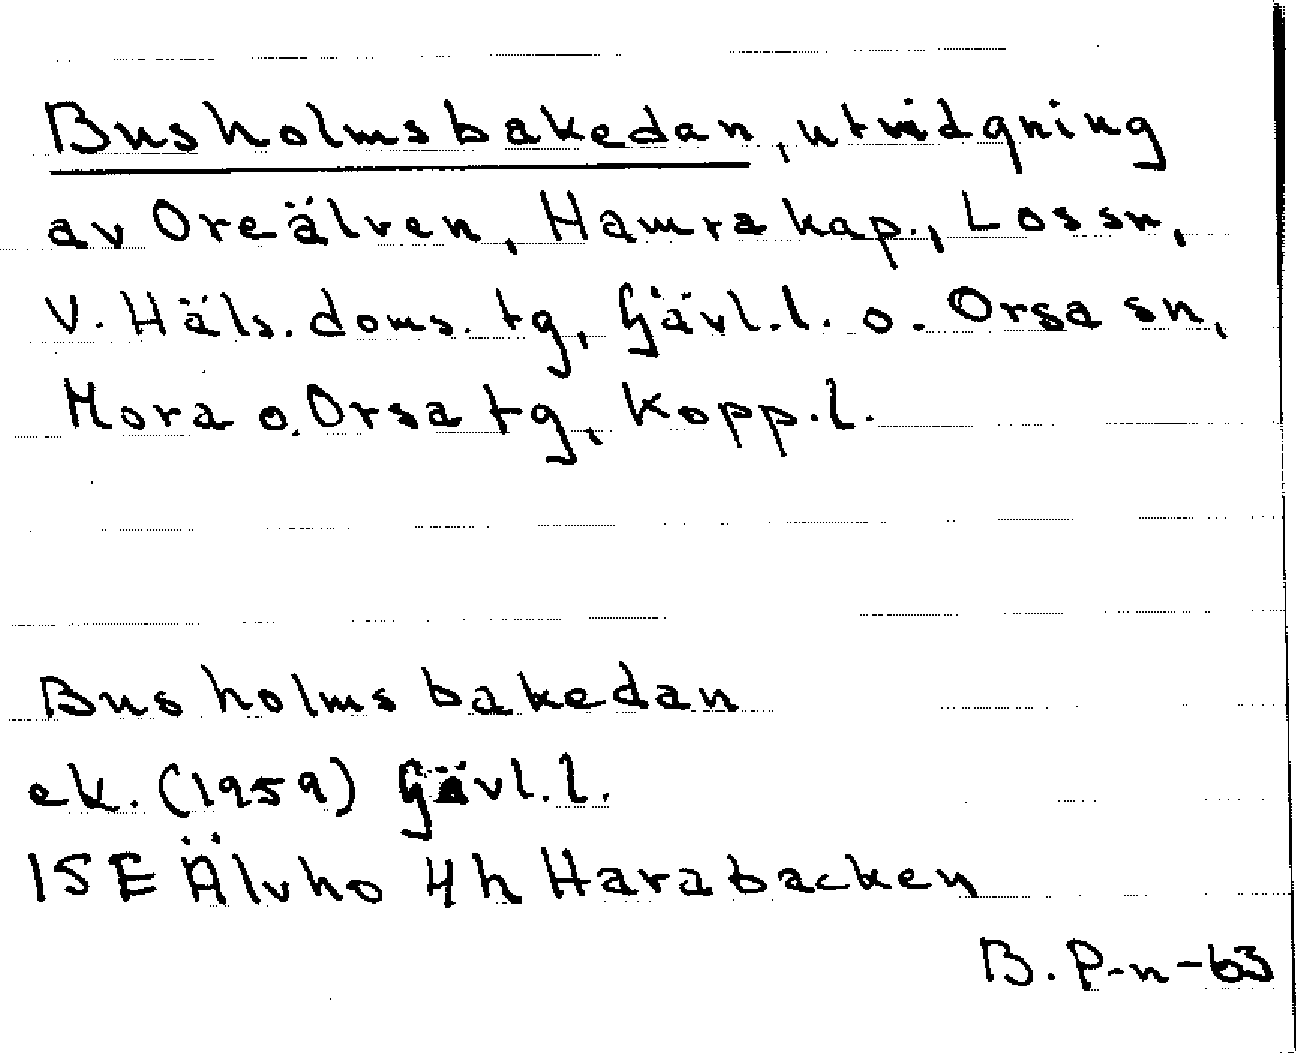 Busholmsbakedan, utvidgning
av Oreälven, Hamra kap., Los sn,
V. Häls. doms. tg, Gävl.l. o. Orsa sn,
Mora o. Orsa tg, Kopp.l.
Busholmsbakedan
ek. (1959) Gävl.l.
15E Älvho 4h Harabacken
B. P-n -63